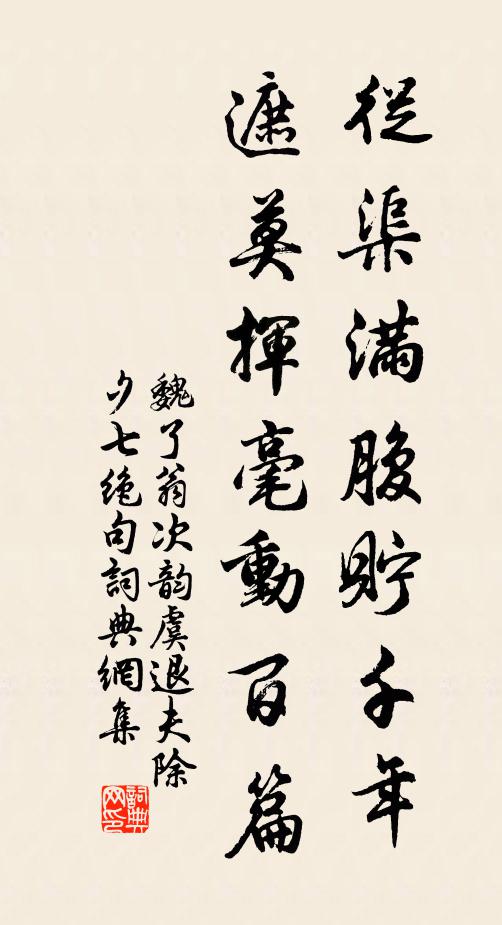 從渠滿腹貯千年
遮莫揮毫動百篇
魏了翁次韵虞退夫除
夕七绝句詞典網集
詞典网印